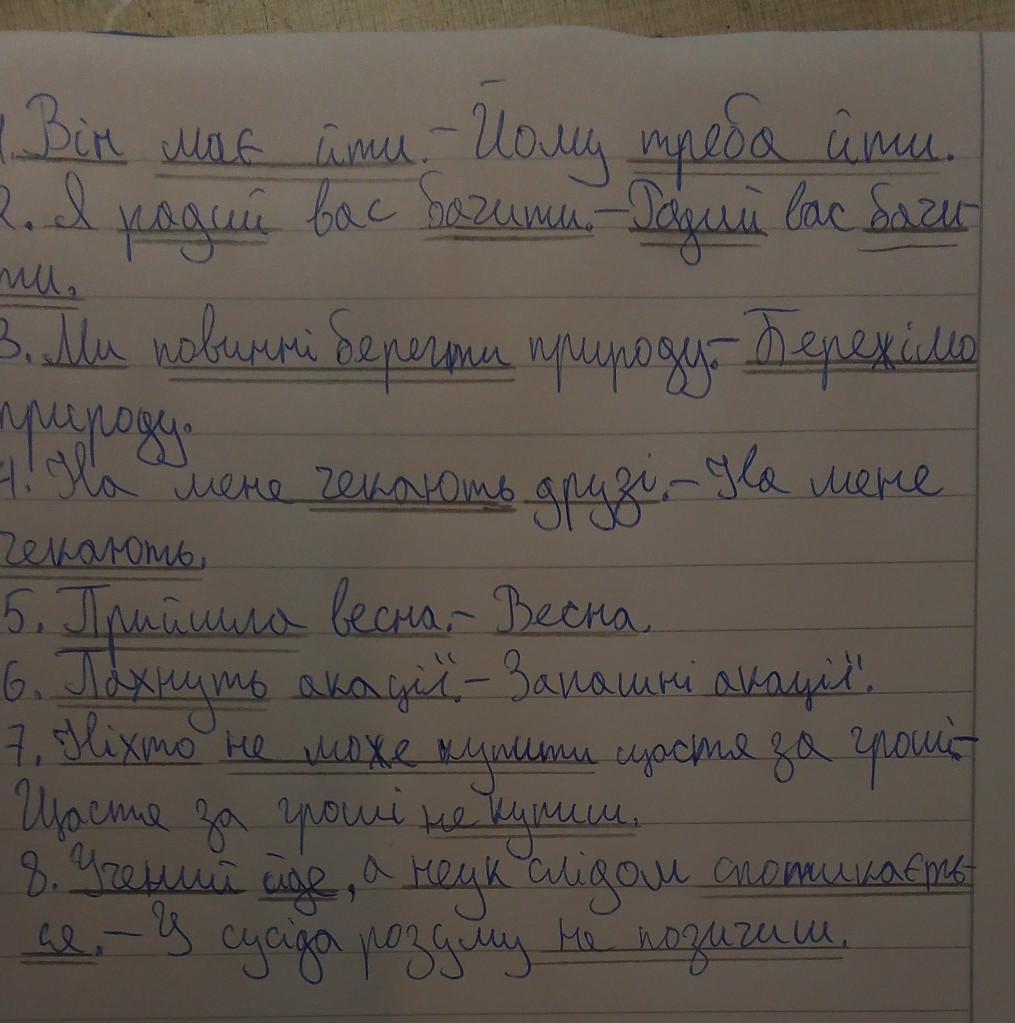 1. Він має йти. – Йому треба йти.
2. Я радий вас бачити. – Радий вас бачи-
ти.
3. Ми повинні берегти природу. – Бережімо
природу.
4. На мене чекають друзі. – На мене
чекають.
5. Прийшла весна. – Весна.
6. Пахнуть акації. – Запашні акації.
7. Ніхто не може купити щастя за гроші. –
Щастя за гроші не купиш.
8. Учений йде, а неук слідом спотикаєть-
ся. – У сусіда розуму не позичиш.